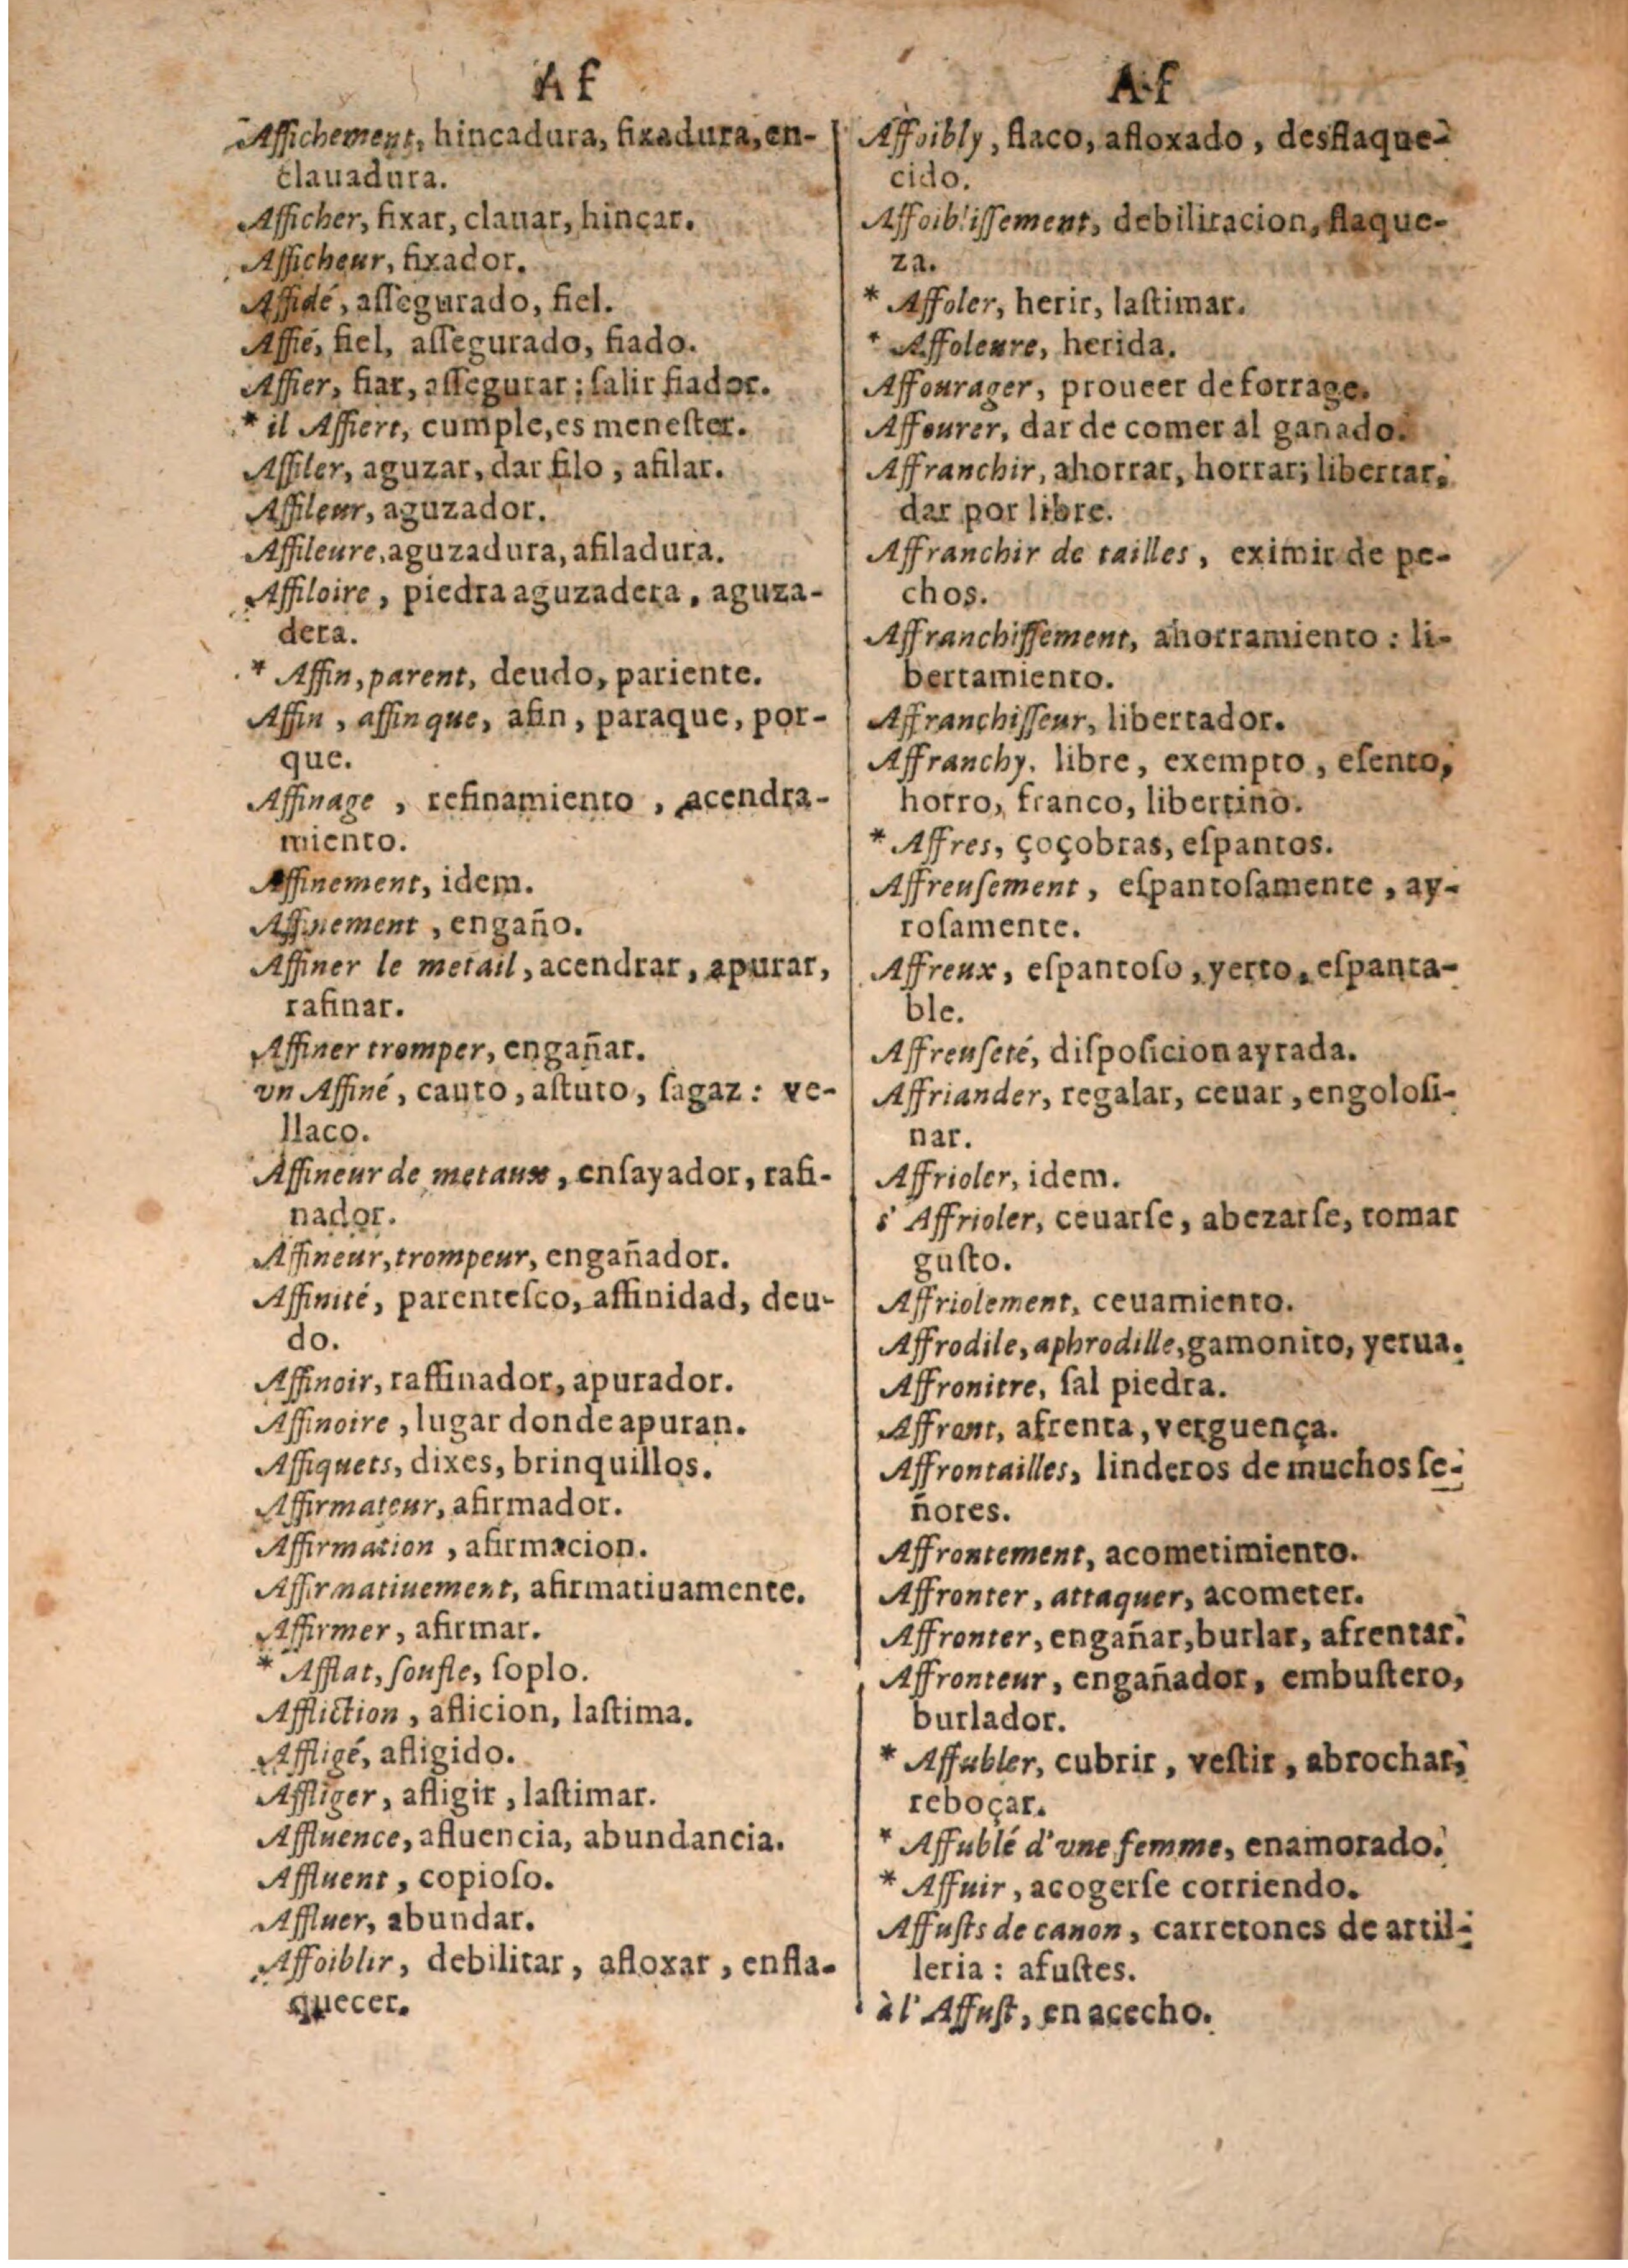 Af
Affichement, hincadura, fixadura, en-
clauadura.
Afficher, fixar, clauar, hincar.
Afficheur, fixador.
Affidé, aſſegurado, fiel.
Affié, fiel, aſſegurado, fiado.
Affier, fiar, aſſegurar; ſalir fiador.
* il Affiert, cumple, es meneſter.
Affiler, aguzar, dar filo, afilar.
Affileur, aguzador.
Affileure, aguzadura, afiladura.
Affiloire, piedra aguzadera, aguza-
dera.
* Affin, parent, deudo, pariente.
Affin, affin que, afin, paraque, por-
que.
Affinage, refinamiento, acendra-
miento.
Affinement, idem.
Affinement, engaño.
Affiner le metail, acendrar, apurar,
rafinar.
Affiner tromper, engañar.
vn Affiné, cauto, aſtuto, ſagaz: ve-
llaco.
Affineur de metaux, enſayador, rafi-
nador.
Affineur, trompeur, engañador.
Affinité, parenteſco, affinidad, deu-
do.
Affinoir, raffinador, apurador.
Affinoire, lugar donde apuran.
Affiquets, dixes, brinquillos.
Affirmateur, afirmador.
Affirmation, afirmacion.
Affirmatiuement, afirmatiuamente.
Affirmer, afirmar.
* Afflat, ſoufle, ſoplo.
Affliction, aflicion, laſtima.
Affligé, afligido.
Affliger, afligir, laſtimar.
Affluence, afluencia, abundancia.
Affluent, copioſo.
Affluer, abundar.
Affoiblir, debilitar, afloxar, enfla-
quecer.
Af
Affoibly, flaco, afloxado, desflaque-
cido.
Affoiblissement, debilitacion, flaque-
za.
* Affoler, herir, laſtimar.
* Affoleure, herida.
Affourager, proueer de forrage.
Affourer, dar de comer al ganado.
Affranchir, ahorrar, horrar; libertar,
dar por libre.
Affranchir de tailles, eximir de pe-
chos.
Affranchiſſement, ahorramiento: li-
bertamiento.
Affranchiſſeur, libertador.
Affranchy, libre, exempto, eſento,
horro, franco, libertino.
* Affres, çoçobras, eſpantos.
Affreuſement, eſpantoſamente, ay-
roſamente.
Affreux, eſpantoſo, yerto, eſpanta-
ble.
Affreuſeté, diſpoſicion ayrada.
Affriander, regalar, ceuar, engoloſi-
nar.
Affrioler, idem.
s'Affrioler, ceuarſe, abezarſe, tomar
guſto.
Affriolement, ceuamiento.
Affrodile, aphrodille, gamonito, yerua.
Affronitre, ſal piedra.
Affront, afrenta, verguença.
Affrontailles, linderos de muchos ſe-
ñores.
Affrontement, acometimiento.
Affronter, attaquer, acometer.
Affronter, engañar, burlar, afrentar.
Affronteur, engañador, embuſtero,
burlador.
* Affubler, cubrir, veſtir, abrochar,
reboçar.
* Affublé d'vne femme, enamorado.
* Affuir, acogerſe corriendo.
Affuſts de canon, carretones de artil-
leria: afuſtes.
à l'Affuſt, en acecho.